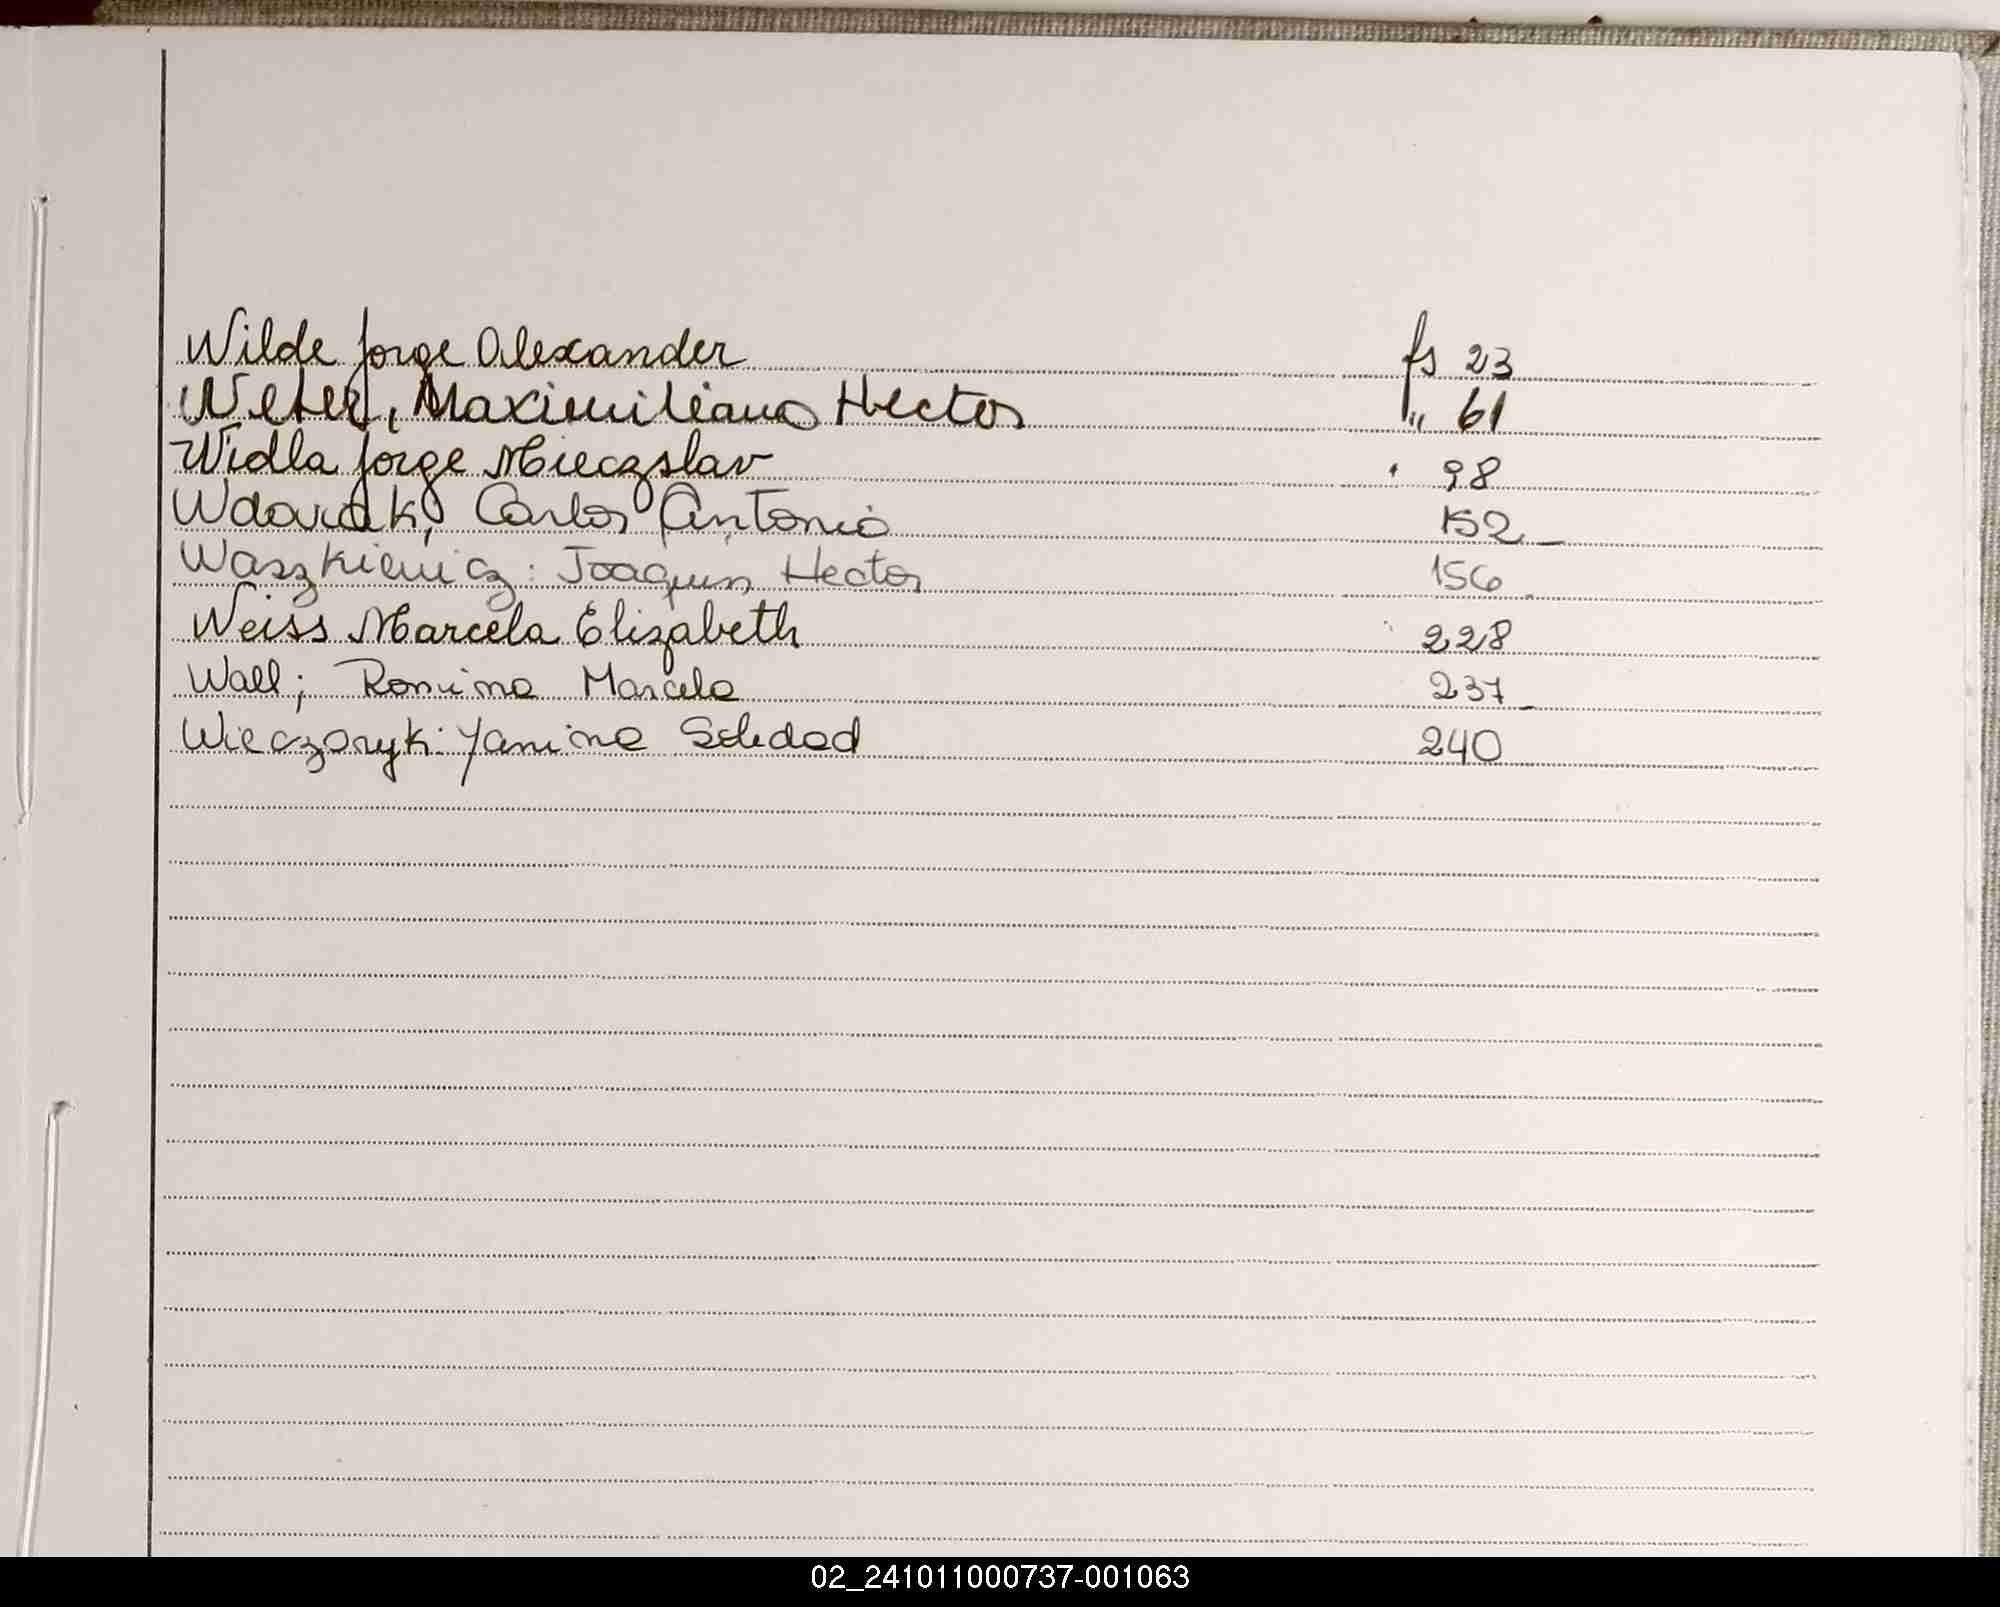 Wilde Jorge Alexander fs 23
Weter, Maximiliano Hector " 61
Widla Jorge Mieczslav 98
Carlos Antonio 152
Waszkiewicz: Joaquin Hector 156
Weiss Marcela Elizabeth 228
Wall; Romina Marcela 237
Wieczoryk: Yanina Soledad 240
02_241011000737-001063